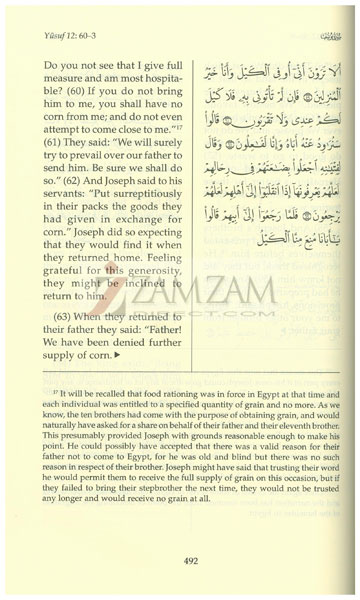 Yūsuf 12: 60–3
Do you not see that I give full
measure and am most hospita-
ble? (60) If you do not bring
him to me, you shall have no
corn from me; and do not even
attempt to come close to me."17
(61) They said: "We will surely
try to prevail over our father to
send him. Be sure we shall do
so." (62) And Joseph said to his
servants: "Put surreptitiously
in their packs the goods they
had given in exchange for
corn." Joseph did so expecting
that they would find it when
they returned home. Feeling
grateful for this generosity,
they might be inclined to
return to him.
(63) When they returned to
their father they said: "Father!
We have been denied further
supply of corn. ▶
أَلَا تَرَوْنَ أَنِّي أُوفِي الْكَيْلَ وَأَنَا خَيْرُ
الْمُنزِلِينَ ۝ فَإِن لَّمْ تَأْتُونِي بِهِ فَلَا كَيْلَ
لَكُمْ عِندِي وَلَا تَقْرَبُونِ ۝ قَالُوا
سَنُرَاوِدُ عَنْهُ أَبَاهُ وَإِنَّا لَفَاعِلُونَ ۝ وَقَالَ
لِفِتْيَانِهِ اجْعَلُوا بِضَاعَتَهُمْ فِي رِحَالِهِمْ
لَعَلَّهُمْ يَعْرِفُونَهَا إِذَا انقَلَبُوا إِلَىٰ أَهْلِهِمْ لَعَلَّهُمْ
يَرْجِعُونَ ۝ فَلَمَّا رَجَعُوا إِلَىٰ أَبِيهِمْ قَالُوا
يَا أَبَانَا مُنِعَ مِنَّا الْكَيْلُ
ZAMZAM
17 It will be recalled that food rationing was in force in Egypt at that time and
each individual was entitled to a specified quantity of grain and no more. As we
know, the ten brothers had come with the purpose of obtaining grain, and would
naturally have asked for a share on behalf of their father and their eleventh brother.
This presumably provided Joseph with grounds reasonable enough to make his
point. He could possibly have accepted that there was a valid reason for their
father not to come to Egypt, for he was old and blind but there was no such
reason in respect of their brother. Joseph might have said that trusting their word
he would permit them to receive the full supply of grain on this occasion, but if
they failed to bring their stepbrother the next time, they would not be trusted
any longer and would receive no grain at all.
492